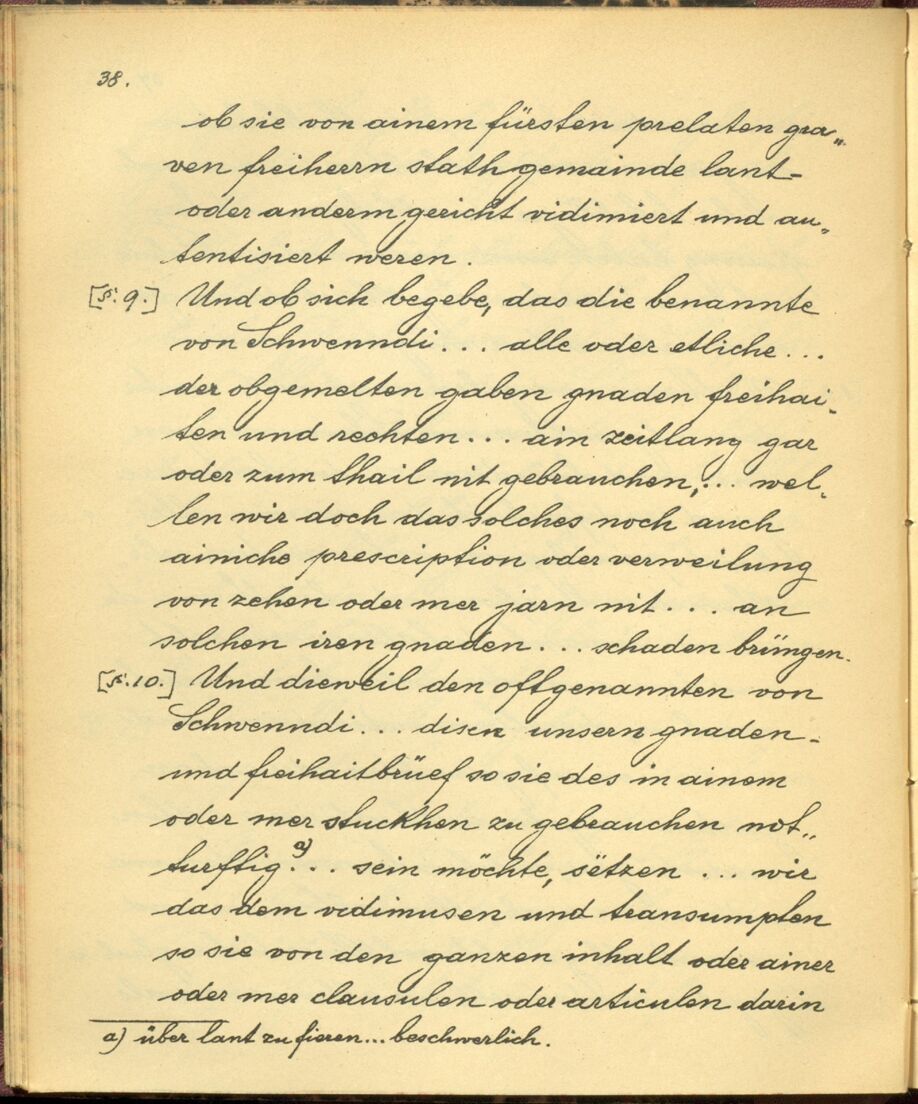 38.
ob sie von ainem fürsten prelaten gra„
ven freiherrn stath gemainde lant-
oder anderm gericht vidimiert und au„
tentisiert weren.
[§. 9.] Und ob sich begebe, das die benannte
von Schwenndi... alle oder etliche...
der obgemelten gaben gnaden freihai„
ten und rechten... ain zeitlang gar
oder zum thail nit gebrauchen,... wel„
len wir doch das solches noch auch
ainiche prescription oder verweilung
von zehen oder mer jarn nit... an
solchen iren gnaden... schaden brüngen.
[§. 10.] Und dieweil den offgenannten von
Schwenndi... disen unsern gnaden-
und freihaitbrüef so sie des in ainem
oder mer stuckhen zu gebrauchen not„
turftig a)... sein möchte, sëtzen... wir
das dem vidimusen und transumpten
so sie von den ganzen inhalt oder ainer
oder mer clausulen oder articulen darin
a) über lant zu fieren... beschwerlich.